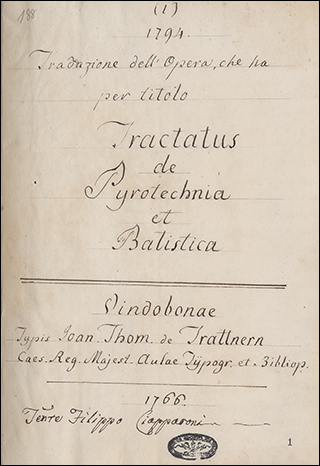 188
(1)
1794.
Traduzione dell'Opera, che ha
per titolo
Tractatus
de
Pyrotechnia
et
Balistica
Vindobonae
Typis Joan. Thom. de Trattnern
Caes. Reg. Majest. Aulae Typogr. et Bibliop.
1766.
Tenre Filippo Ciapparoni
1